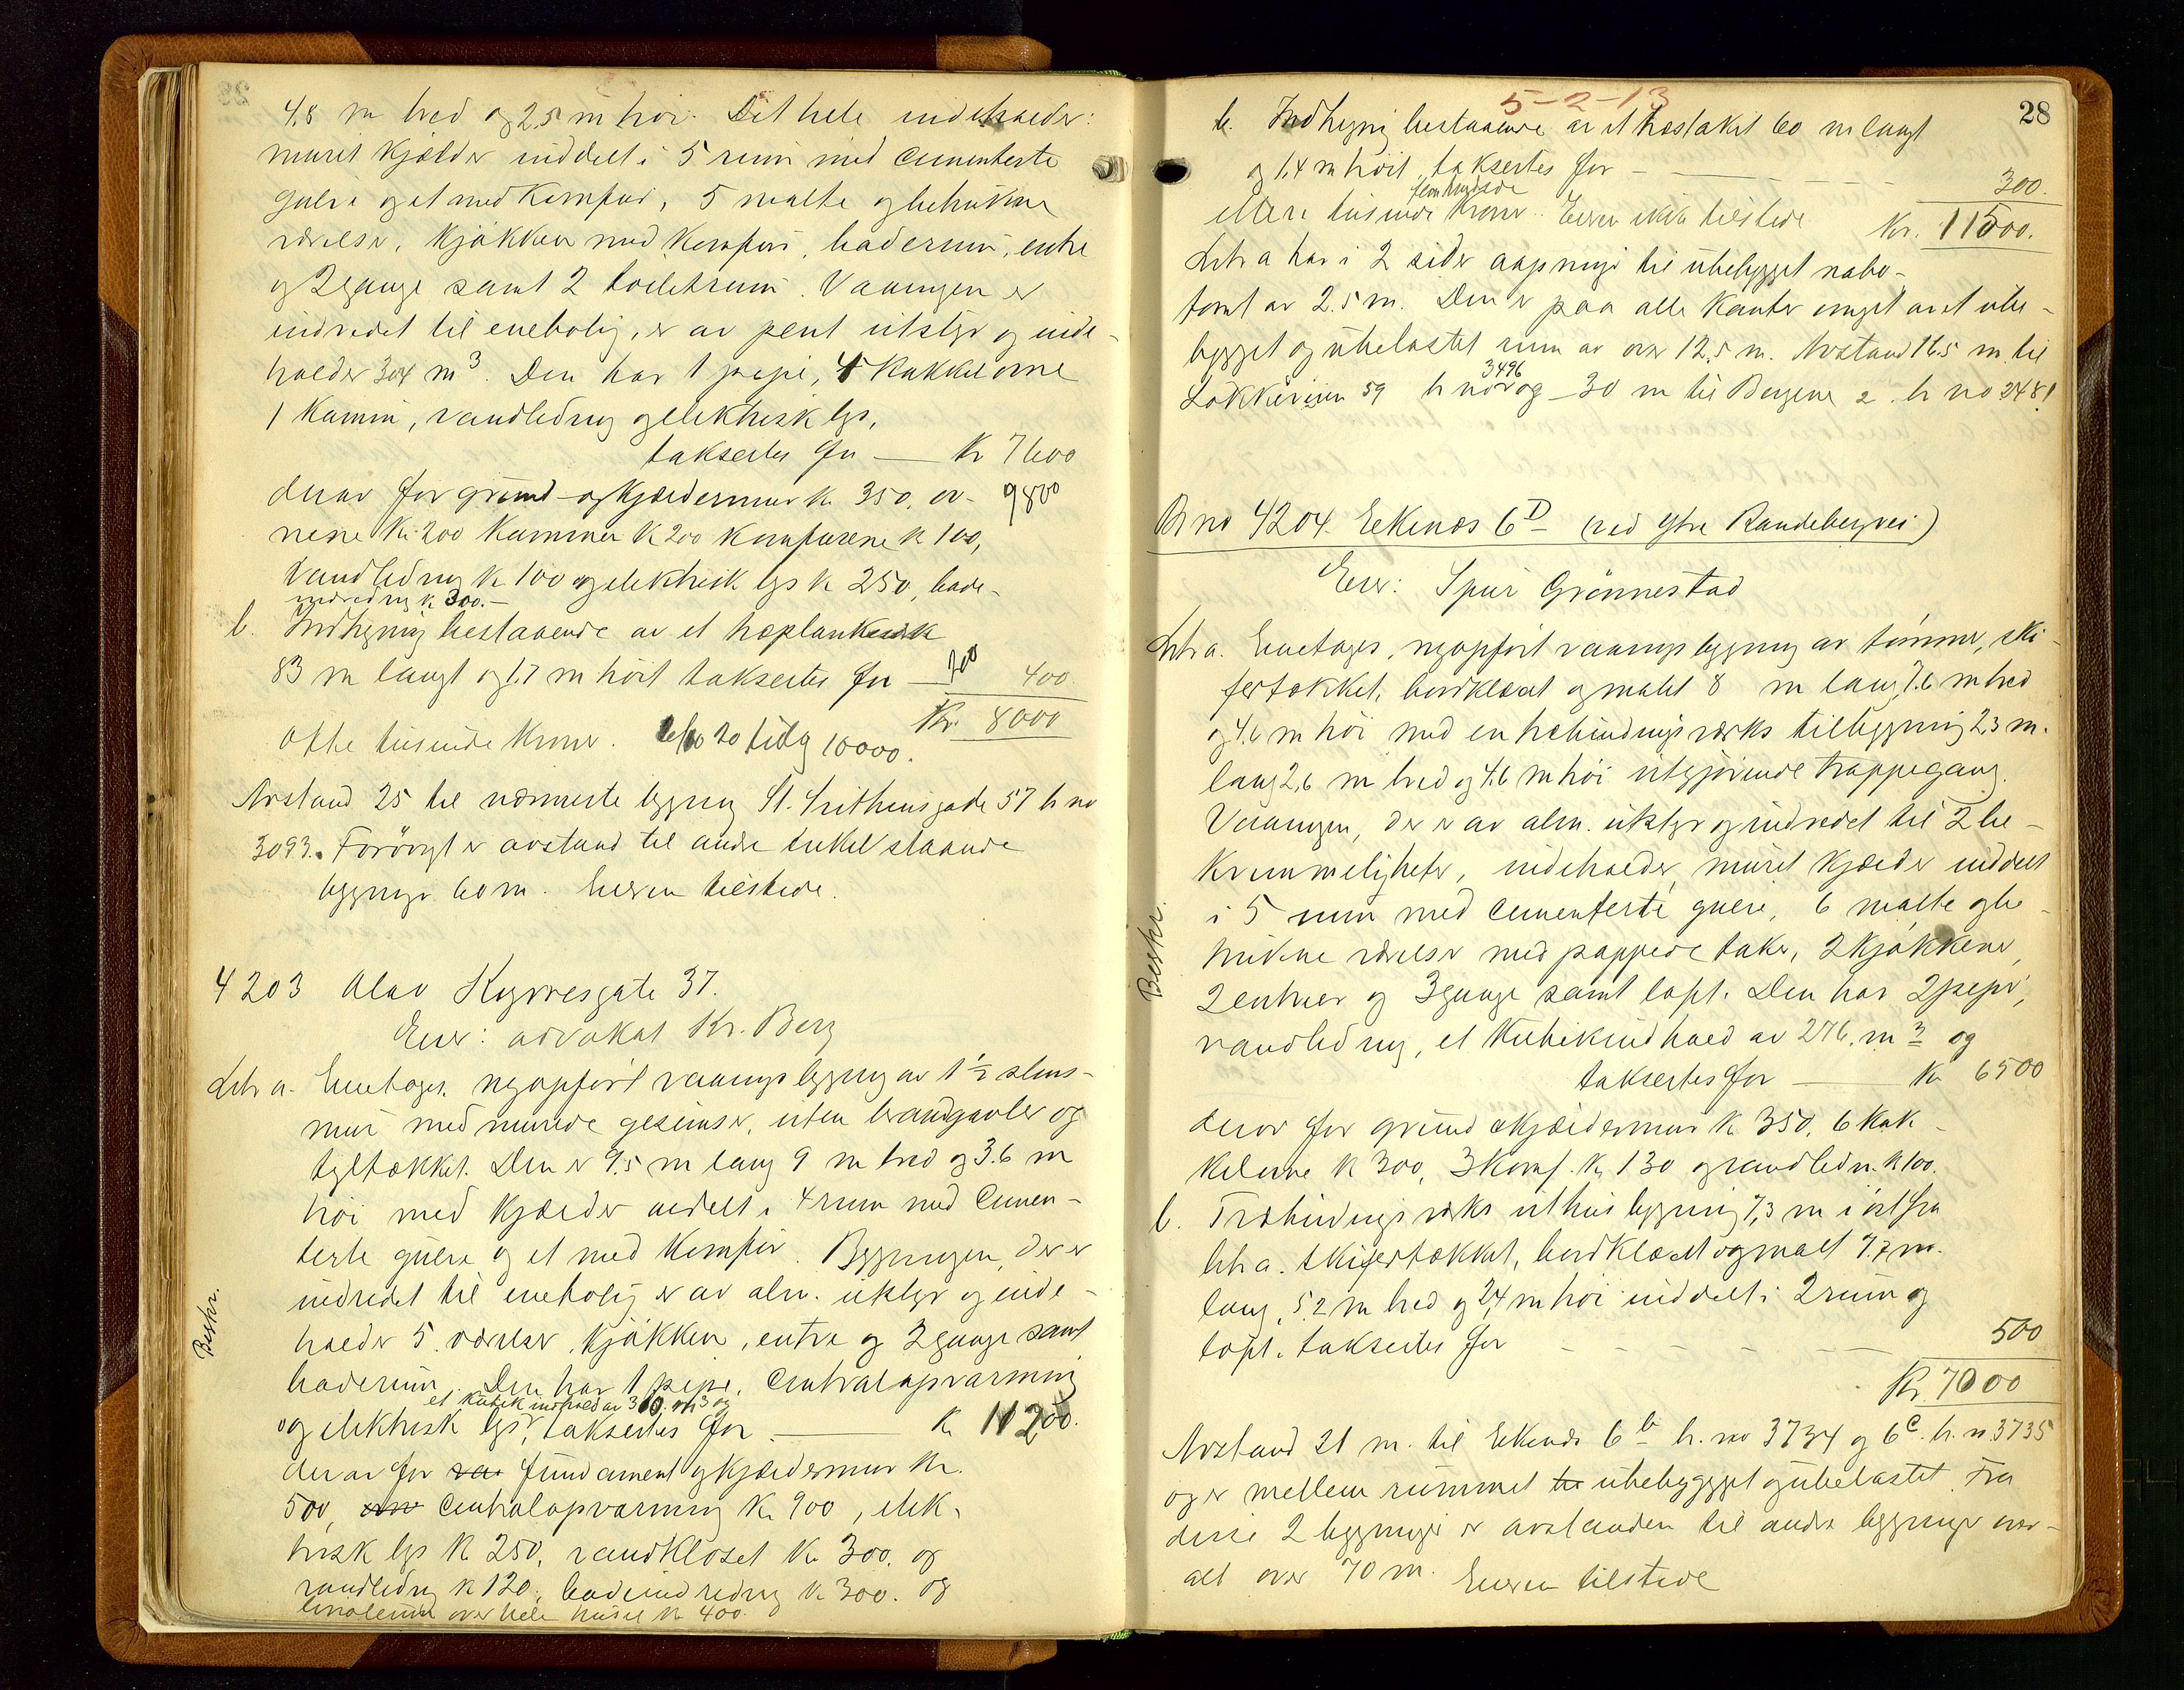 4,8 m bred og 2,5 m høi. Det hele indeholder:
muret kjælder inddelt i 5 rum med cementerte
gulve og et med komfur, 5 malte og betrukne
værelser, kjøkken med komfur, baderum, entre
og 2 gange samt 2 toiletrum. Vaaningen er
indredet til enebolig, er av pent utstyr og inde-
holder 304 m3. Den har 1 pipe, 4 kakkelovne
1 kamin, vandledning og elektrisk lys,
taksertes for — Kr 7600
derav for grund- og kjældermur kr. 350, ov- 9800
nene kr. 200 kaminen kr 200 komfurene kr 100,
vandledning kr 100 og elektrisk lys kr 250, bade-
indredning kr 300.-
b. Indhegning bestaaende av et træplankestak
83 m langt og 1,7 m høit taksertes for — 200 400
Kr. 8000
otte tusinde kroner. 20 tidlg 10000.
Avstand 25 til nærmeste bygning St. Svithunsgade 57 br no
3093. Forøvrigt er avstand til andre enkelstaaende
bygninger 60 m. Eieren tilstede.
4203 Olav Kyrresgate 37.
Eier: advokat Kr. Berg
Litr a. Enetages, nyopført vaaningsbygning av 1½ stens-
mur med murede gesimser, uten brandgavler og
tegltækket. Den er 9,5 m lang 9 m bred og 3.6 m
høi med kjælder avdelt i 4 rum med cemen-
terte gulve og et med komfur. Bygningen, der er
indredet til enebolig er av alm. utstyr og inde-
holder 5 værelser, kjøkken, entre og 2 gange samt
Beskr.
baderum. Den har 1 pipe, Centralopvarming
et kubikindhold av 310 m3 og
og elektrisk lys, taksertes for — Kr 11200.
derav for fundament og kjældermur kr.
500, Centralopvarming kr. 900, elek-
trisk lys kr 250, vandkloset kr 300, og
vandledng kr 120, badeindredng kr 300. og
linoleum over hele huset kr 400.
5-2-13
28
b. Indhegng bestaaende av et træstaket 60 m langt
og 1,4 m høit taksertes for — 300.
femhundrede
elleve tusinde kroner. Eieren ikke tilstede Kr. 11500.
Litr a har i 2 sider aapninger til ubebygget nabo-
tomt av 2.5 m. Den er paa alle kanter omgit av et ube-
bygget og ubelastet rum av over 12,5 m. Avstand 16.5 m til
3496
Løkkeveien 59 br no og 30 m til Bergene 2. br no 2481
Br no 4204. Eekenæs 6D (ved ytre Randebergvei)
Eier: Spur Grønnestad
Litr a. Enetages, nyopført vaaningsbygning av tømmer, ski-
fertækket, bordklædt og malet 8 m lang, 7.6 m bred
og 4,6 m høi med en træbindingsværks tilbygning 2,3 m.
lang 2,6 m bred og 4.6 m høi utgjørende trappegang.
Vaaningen, der er av alm. utstyr og indredet til 2 be-
kvemmeligheter, indeholder muret kjælder inddelt
i 5 rum med cementerte gulve, 6 malte og be-
Beskr.
trukne værelser med pappede taker, 2 kjøkkener,
2 entreer og 3 gange samt loft. Den har 2 piper,
vandledning, et kubikindhold av 276. m3 og
taksertes for — Kr 6500
derav for grund & kjældermur kr. 350, 6 kak-
kelovne kr 300, 3 komf. kr. 130 og vandledn. kr 100.
b. Træbindingsværks uthusbygning 7,3 m i øst fra
litr a. skifertækket, bordklædt og malt 7.7 m.
lang, 5.2 m bred og 2,4 m høi inddelt i 2 rum og
loft. taksertes for — 500
Kr. 7000
Avstand 21 m. til Ekenæs 6b br. no 3734 og 6c. br. n 3735
og er mellem rummet ubebygget og ubelastet. Fra
disse 2 bygninger er avstanden til andre bygninger over-
alt over 70 m. Eieren tilstede